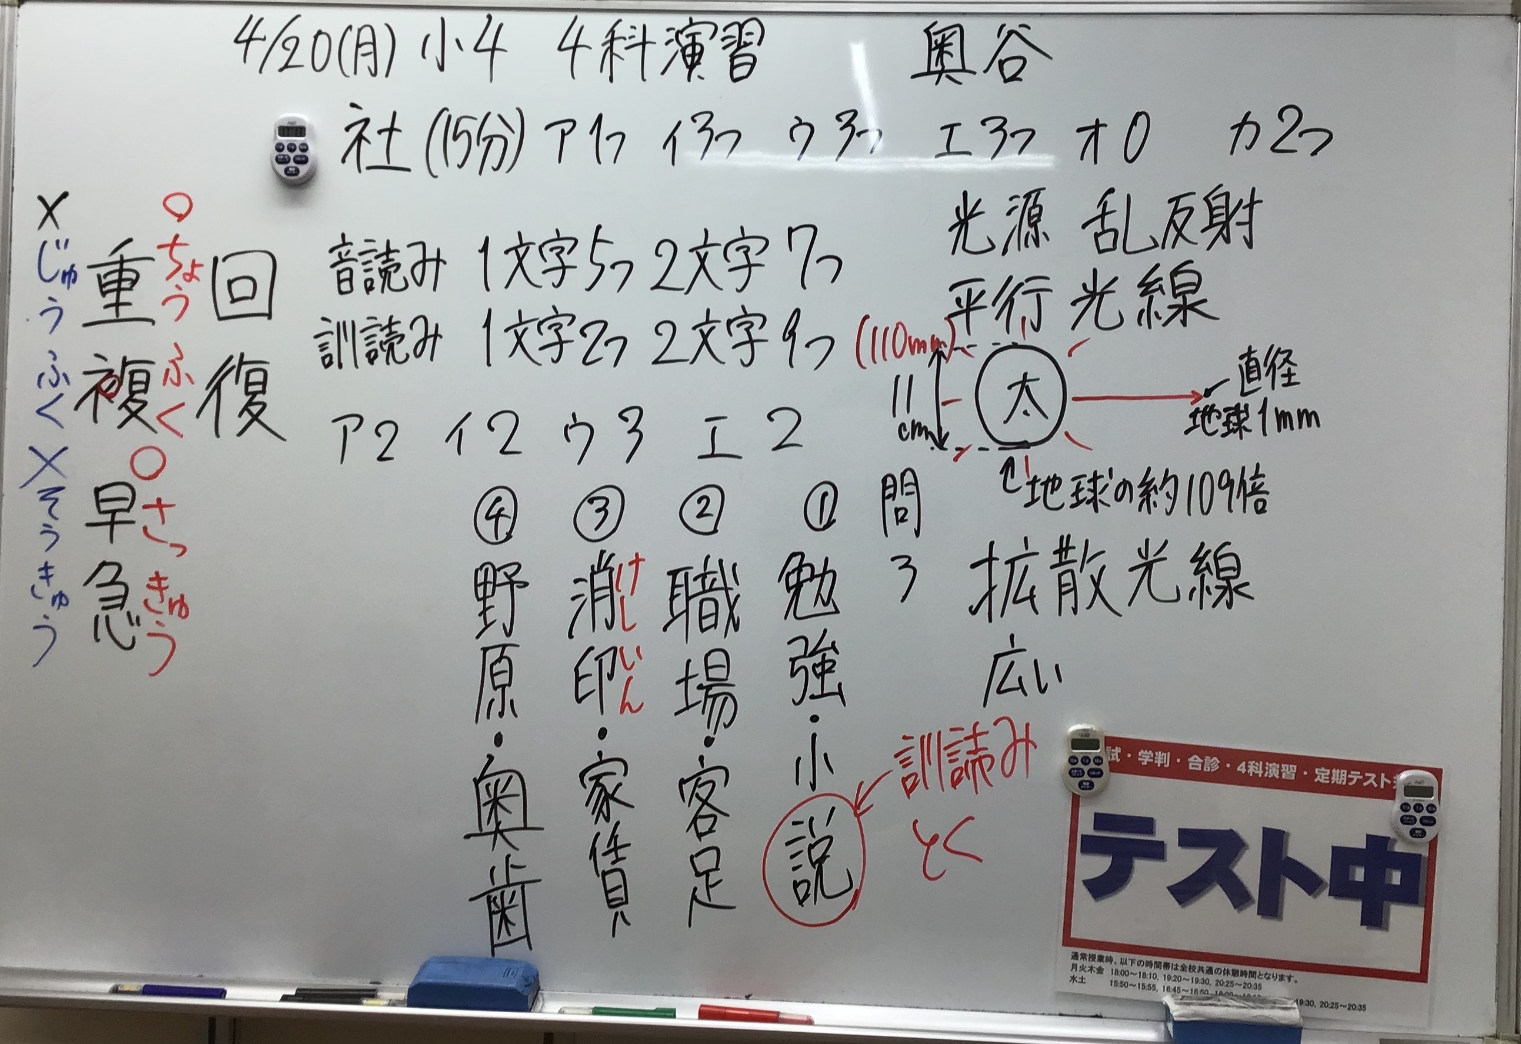 4/20(月) 小4 4科演習 奥谷
社(15分) ア1つ イ3つ ウ3つ エ3つ オ0 カ2つ
回復
○ちょうふく
重複
×じゅうふく
○さっきゅう
早急
×そうきゅう
音読み 1文字5つ 2文字7つ
訓読み 1文字2つ 2文字9つ
ア2 イ2 ウ3 エ2
光源 乱反射
平行光線
(110mm)
11cm
太
直径
地球1mm
地球の約109倍
拡散光線
広い
問3
①勉強・小説
訓読み
とく
②職場・客足
③消印・家賃
けしいん
④野原・奥歯
試・学判・合診・4科演習・定期テスト
テスト中
通常授業時、以下の時間帯は全校共通の休憩時間となります。
月火木金 18:00~18:10、19:20~19:30、20:25~20:35
水土 15:50~15:55、16:45~16:50、19:30、20:25~20:35